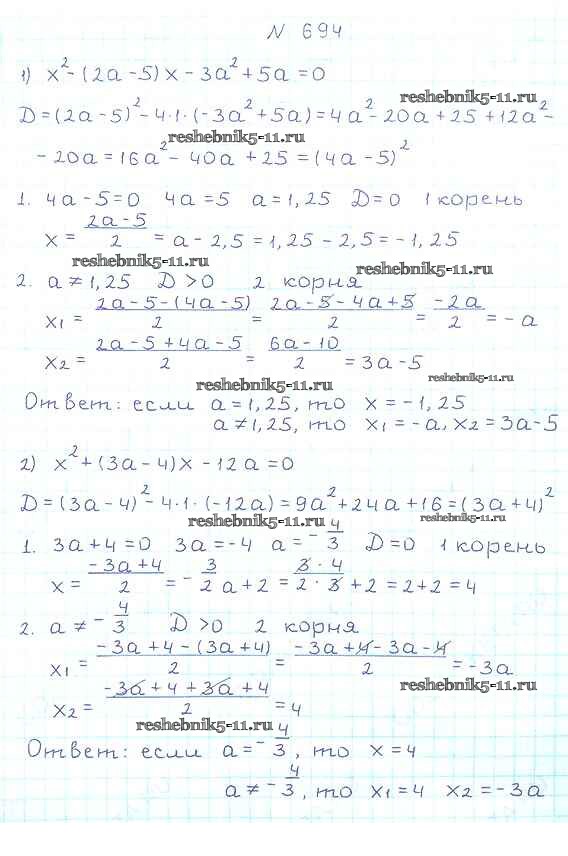 N 694
1) x² - (2a - 5)x - 3a² + 5a = 0
reshebnik5-11.ru
D = (2a - 5)² - 4·1·(-3a² + 5a) = 4a² - 20a + 25 + 12a² -
reshebnik5-11.ru
- 20a = 16a² - 40a + 25 = (4a - 5)²
1. 4a - 5 = 0 4a = 5 a = 1,25 D = 0 1 корень
x = (2a - 5)/2 = a - 2,5 = 1,25 - 2,5 = -1,25
reshebnik5-11.ru
reshebnik5-11.ru
2. a ≠ 1,25 D > 0 2 корня
x₁ = (2a - 5 - (4a - 5))/2 = (2a - 5 - 4a + 5)/2 = -2a/2 = -a
x₂ = (2a - 5 + 4a - 5)/2 = (6a - 10)/2 = 3a - 5
reshebnik5-11.ru
reshebnik5-11.ru
Ответ: если a = 1,25, то x = -1,25
a ≠ 1,25, то x₁ = -a, x₂ = 3a - 5
2) x² + (3a - 4)x - 12a = 0
D = (3a - 4)² - 4·1·(-12a) = 9a² + 24a + 16 = (3a + 4)²
reshebnik5-11.ru
reshebnik5-11.ru
1. 3a + 4 = 0 3a = -4 a = -4/3 D = 0 1 корень
x = (-3a + 4)/2 = -3/2 a + 2 = (3·4)/(2·3) + 2 = 2 + 2 = 4
2. a ≠ -4/3 D > 0 2 корня
x₁ = (-3a + 4 - (3a + 4))/2 = (-3a + 4 - 3a - 4)/2 = -3a
x₂ = (-3a + 4 + 3a + 4)/2 = 4
reshebnik5-11.ru
reshebnik5-11.ru
Ответ: если a = -4/3, то x = 4
a ≠ -4/3, то x₁ = 4 x₂ = -3a